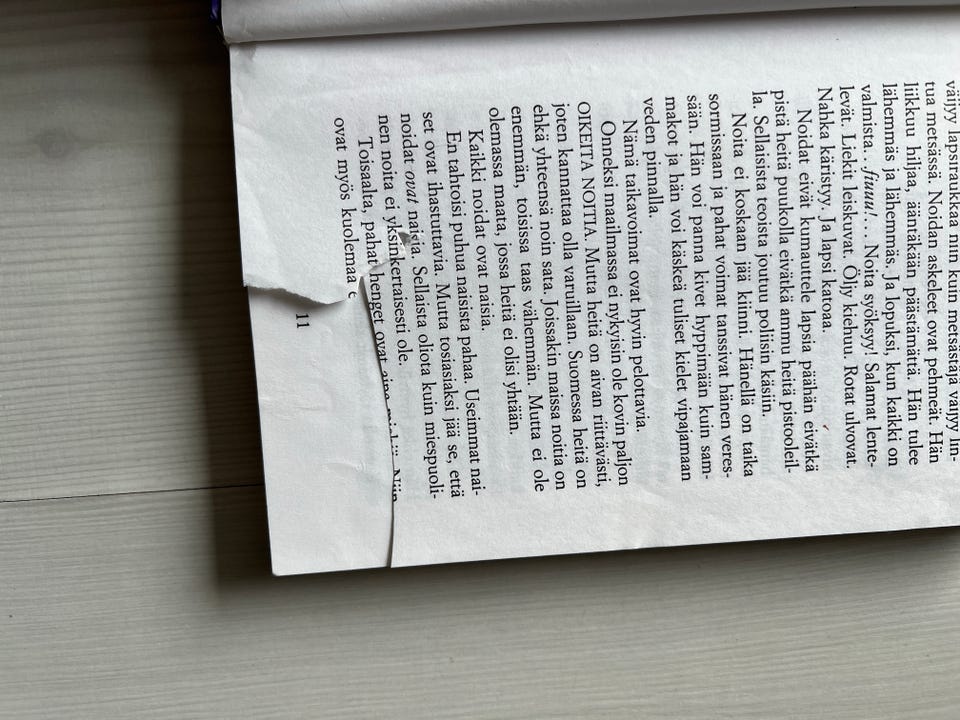 väijyy lapsiraukkaa niin kuin metsästäjä väijyy lin-
tua metsässä. Noidan askeleet ovat pehmeät. Hän
liikkuu hiljaa, ääntäkään päästämättä. Hän tulee
lähemmäs ja lähemmäs. Ja lopuksi, kun kaikki on
valmista. . .fiuuu!. . . Noita syöksyy! Salamat lente-
levät. Liekit leiskuvat. Öljy kiehuu. Rotat ulvovat.
Nahka käristyy. Ja lapsi katoaa.
Noidat eivät kumauttele lapsia päähän eivätkä
pistä heitä puukolla eivätkä ammu heitä pistooleil-
la. Sellaisista teoista joutuu poliisin käsiin.
Noita ei koskaan jää kiinni. Hänellä on taika
sormissaan ja pahat voimat tanssivat hänen veres-
sään. Hän voi panna kivet hyppimään kuin sam-
makot ja hän voi käskeä tuliset kielet vipajamaan
veden pinnalla.
Nämä taikavoimat ovat hyvin pelottavia.
Onneksi maailmassa ei nykyisin ole kovin paljon
OIKEITA NOITIA. Mutta heitä on aivan riittävästi,
joten kannattaa olla varuillaan. Suomessa heitä on
ehkä yhteensä noin sata. Joissakin maissa noitia on
enemmän, toisissa taas vähemmän. Mutta ei ole
olemassa maata, jossa heitä ei olisi yhtään.
Kaikki noidat ovat naisia.
En tahtoisi puhua naisista pahaa. Useimmat nai-
set ovat ihastuttavia. Mutta tosiasiaksi jää se, että
noidat ovat naisia. Sellaista oliota kuin miespuoli-
nen noita ei yksinkertaisesti ole.
Toisaalta, pahat henget ovat aina Niin
ovat myös kuolemaa
11